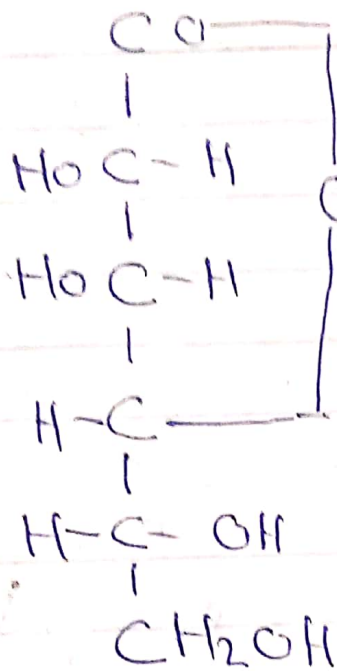 CO
HO C-H
C
HO C-H
H-C
H-C-OH
CH2OH